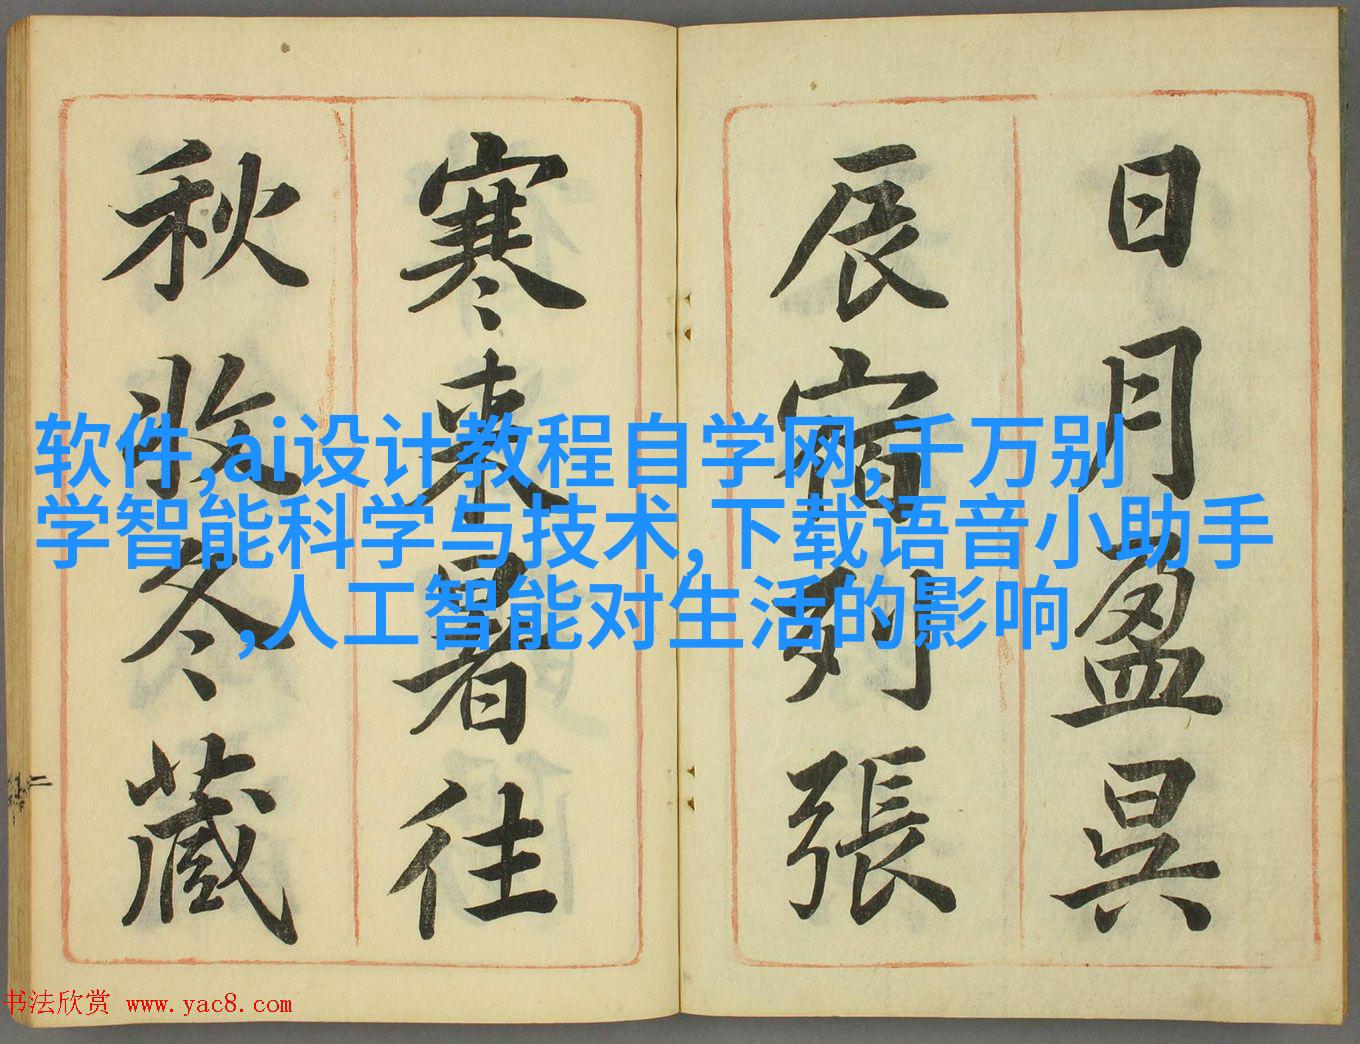 日月盈昃
辰宿列張
寒来暑往
秋收冬藏
软件,ai设计教程自学网,千万别
学智能科学与技术,下载语音小助手
,人工智能对生活的影响
书法欣赏 www.yac8.com